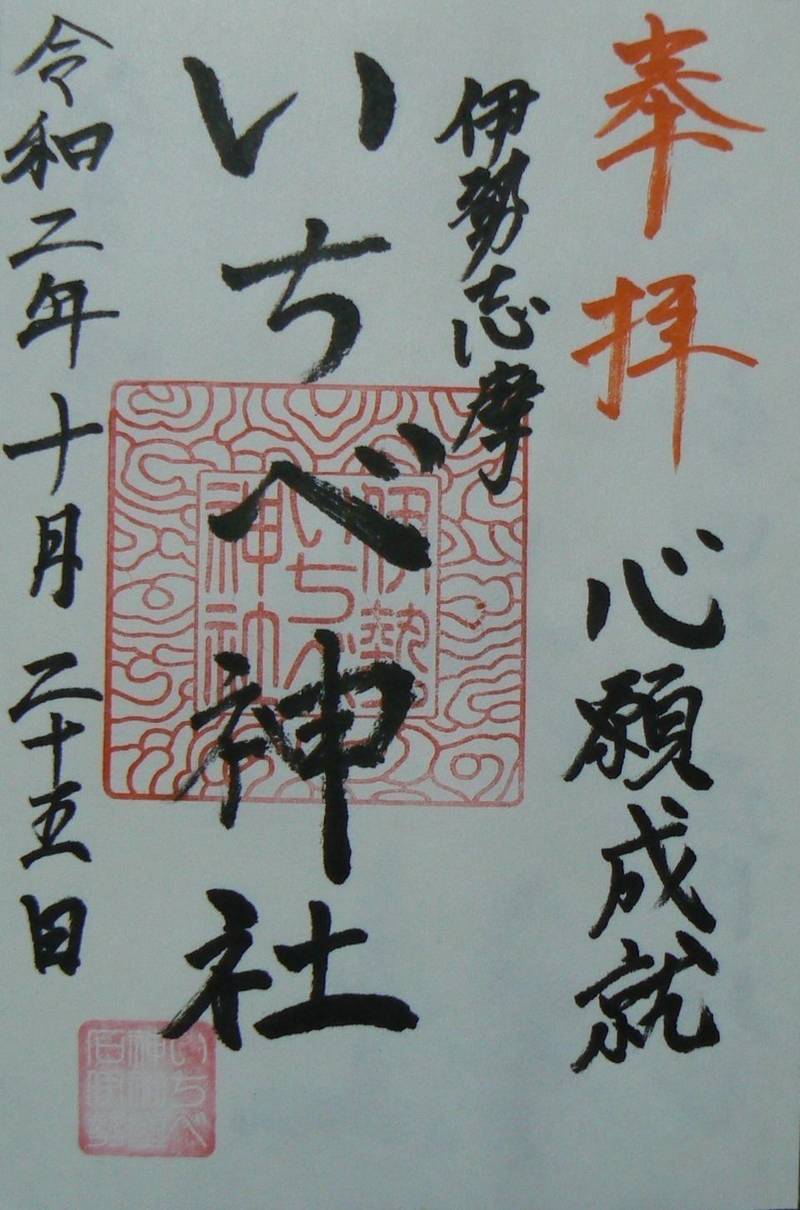 奉拝
心願成就
伊勢志摩
いちべ神社
令和二年十月二十五日
伊勢
いちべ
神社
いちべ